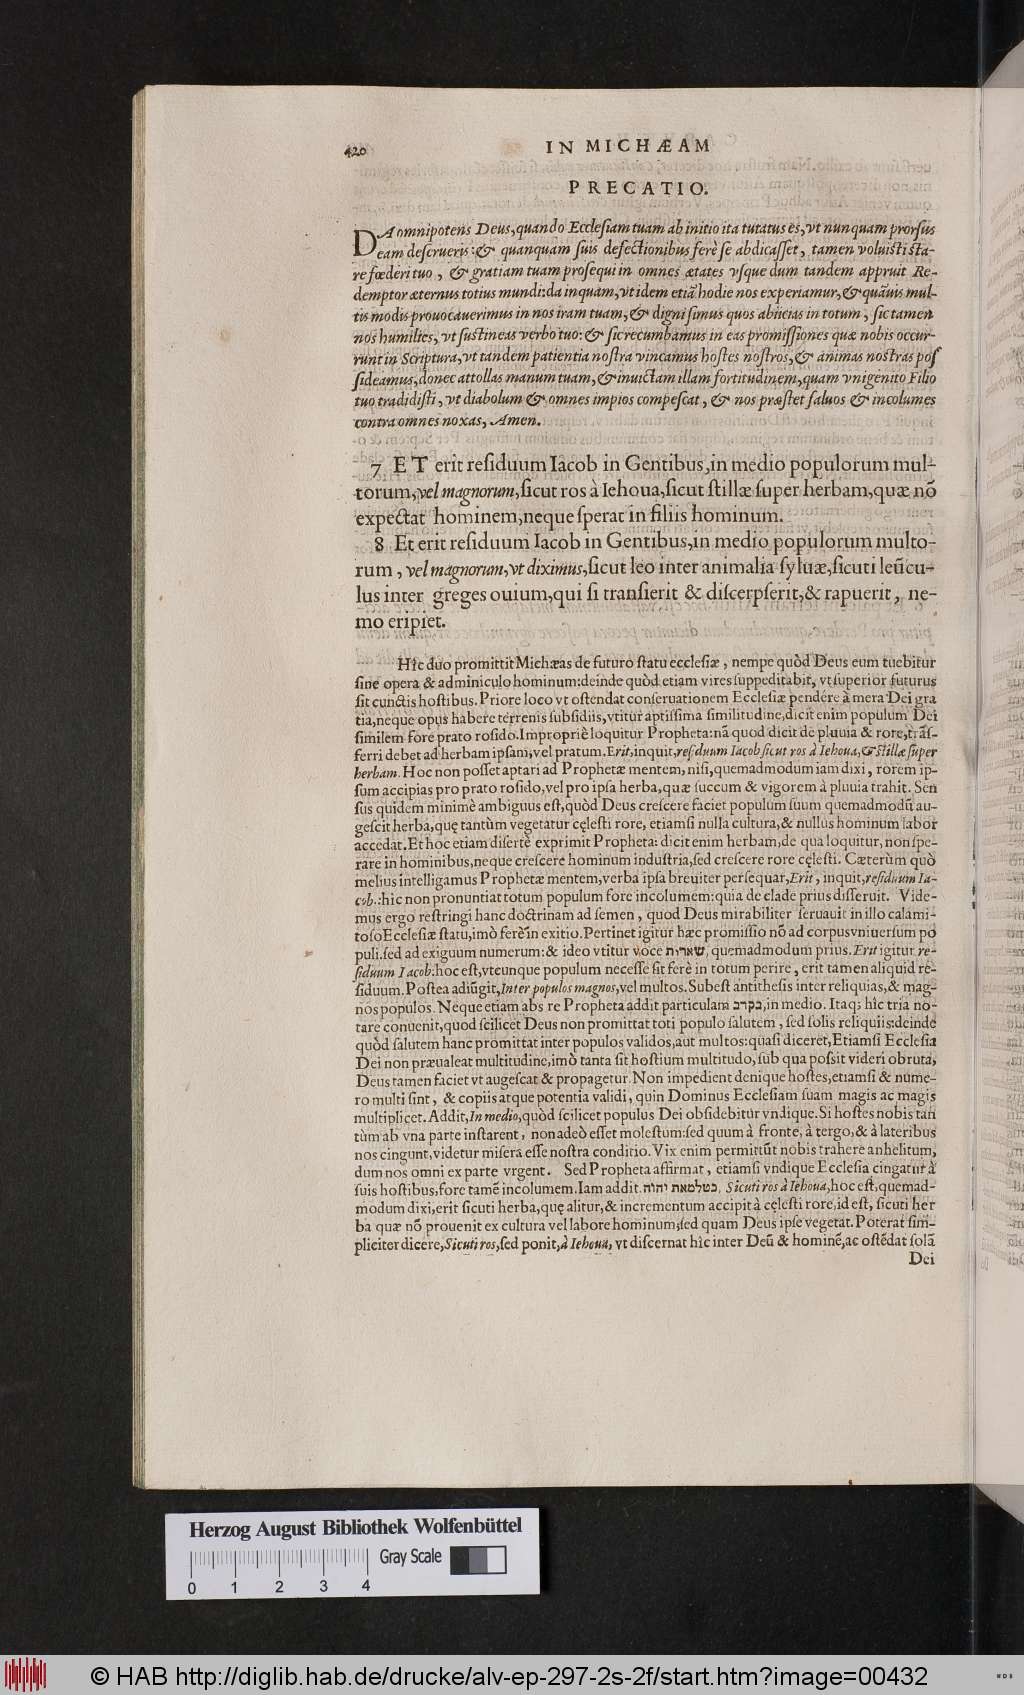 420 IN MICHÆAM
PRECATIO.
DA omnipotens Deus, quando Ecclesiam tuam ab initio ita tutatus es, vt nunquam prorsus
eam deserueris: & quanquam suis defectionibus ferè se abdicasset, tamen voluisti sta-
re fœderi tuo, & gratiam tuam prosequi in omnes ætates vsque dum tandem appruit Re-
demptor æternus totius mundi: da inquam, vt idem etiā hodie nos experiamur, & quāuis mul-
tis modis prouocauerimus in nos iram tuam, & digni simus quos abiicias in totum, sic tamen
nos humilies, vt sustineas verbo tuo: & sic recumbamus in eas promissiones quæ nobis occur-
runt in Scriptura, vt tandem patientia nostra vincamus hostes nostros, & animas nostras pos
sideamus, donec attollas manum tuam, & inuictam illam fortitudinem, quam vnigenito Filio
tuo tradidisti, vt diabolum & omnes impios compescat, & nos præstet saluos & incolumes
contra omnes noxas, Amen.
7 ET erit residuum Iacob in Gentibus, in medio populorum mul-
torum, vel magnorum, sicut ros à Iehoua, sicut stillæ super herbam, quæ nō
expectat hominem, neque sperat in filiis hominum.
8 Et erit residuum Iacob in Gentibus, in medio populorum multo-
rum, vel magnorum, vt diximus, sicut leo inter animalia syluæ, sicuti leūcu-
lus inter greges ouium, qui si transierit & discerpserit, & rapuerit, ne-
mo eripiet.
Hîc duo promittit Michæas de futuro statu ecclesiæ, nempe quòd Deus eum tuebitur
sine opera & adminiculo hominum: deinde quòd etiam vires suppeditabit, vt superior futurus
sit cunctis hostibus. Priore loco vt ostendat conseruationem Ecclesiæ pendere à mera Dei gra
tia, neque opus habere terrenis subsidiis, vtitur aptissima similitudine, dicit enim populum Dei
similem fore prato rosido. Impropriè loquitur Propheta: nā quod dicit de pluuia & rore, trās-
ferri debet ad herbam ipsam, vel pratum. Erit, inquit, residuum Iacob sicut ros à Iehoua, & stillæ super
herbam. Hoc non posset aptari ad Prophetæ mentem, nisi, quemadmodum iam dixi, rorem ip-
sum accipias pro prato rosido, vel pro ipsa herba, quæ succum & vigorem à pluuia trahit. Sen
sus quidem minimè ambiguus est, quòd Deus crescere faciet populum suum quemadmodū au-
gescit herba, quę tantùm vegetatur cęlesti rore, etiamsi nulla cultura, & nullus hominum labor
accedat. Et hoc etiam disertè exprimit Propheta: dicit enim herbam, de qua loquitur, non spe-
rare in hominibus, neque crescere hominum industria, sed crescere rore cęlesti. Cæterùm quò
melius intelligamus Prophetæ mentem, verba ipsa breuiter persequar, Erit, inquit, residuum Ia-
cob.: hic non pronuntiat totum populum fore incolumem: quia de clade prius disseruit. Vide-
mus ergo restringi hanc doctrinam ad semen, quod Deus mirabiliter seruauit in illo calami-
toso Ecclesiæ statu, imò ferè in exitio. Pertinet igitur hæc promissio nō ad corpus vniuersum po
puli, sed ad exiguum numerum: & ideo vtitur voce שארית, quemadmodum prius. Erit igitur re-
siduum Iacob: hoc est, vteunque populum necesse sit ferè in totum perire, erit tamen aliquid re-
siduum. Postea adiūgit, Inter populos magnos, vel multos. Subest antithesis inter reliquias, & mag-
nos populos. Neque etiam abs re Propheta addit particulam בקרב, in medio. Itaq; hîc tria no-
tare conuenit, quod scilicet Deus non promittat toti populo salutem, sed solis reliquiis: deinde
quòd salutem hanc promittat inter populos validos, aut multos: quasi diceret, Etiamsi Ecclesia
Dei non præualeat multitudine, imò tanta sit hostium multitudo, sub qua possit videri obruta,
Deus tamen faciet vt augescat & propagetur. Non impedient denique hostes, etiamsi & nume-
ro multi sint, & copiis atque potentia validi, quin Dominus Ecclesiam suam magis ac magis
multiplicet. Addit, In medio, quòd scilicet populus Dei obsidebitur vndique. Si hostes nobis tan
tùm ab vna parte instarent, non adeò esset molestum: sed quum à fronte, à tergo, & à lateribus
nos cingunt, videtur misera esse nostra conditio. Vix enim permittūt nobis trahere anhelitum,
dum nos omni ex parte vrgent. Sed Propheta affirmat, etiamsi vndique Ecclesia cingatur à
suis hostibus, fore tamē incolumem. Iam addit כטלמאת יהוה, Sicuti ros à Iehoua, hoc est, quemad-
modum dixi, erit sicuti herba, quę alitur, & incrementum accipit à cęlesti rore, id est, sicuti her
ba quæ nō prouenit ex cultura vel labore hominum, sed quam Deus ipse vegetat. Poterat sim-
pliciter dicere, Sicuti ros, sed ponit, à Iehoua, vt discernat hîc inter Deū & hominē, ac ostēdat solā
Dei
Herzog August Bibliothek Wolfenbüttel
Gray Scale
0 1 2 3 4
© HAB http://diglib.hab.de/drucke/alv-ep-297-2s-2f/start.htm?image=00432